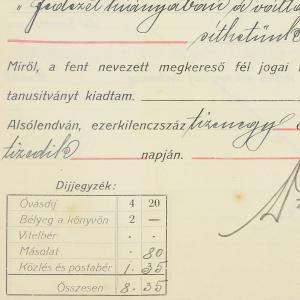 „ fedezet hiányában a vált
síthetünk
Miről, a fent nevezett megkereső fél jogai
tanusítványt kiadtam.
Alsólendván, ezerkilenczszáz tizenegy
tizedik napján.
Díjjegyzék:
Óvásdíj 4 20
Bélyeg a könyvön 2 —
Vitelbér . .
Másolat . 80
Közlés és postabér 1. 35
Összesen 8. 35